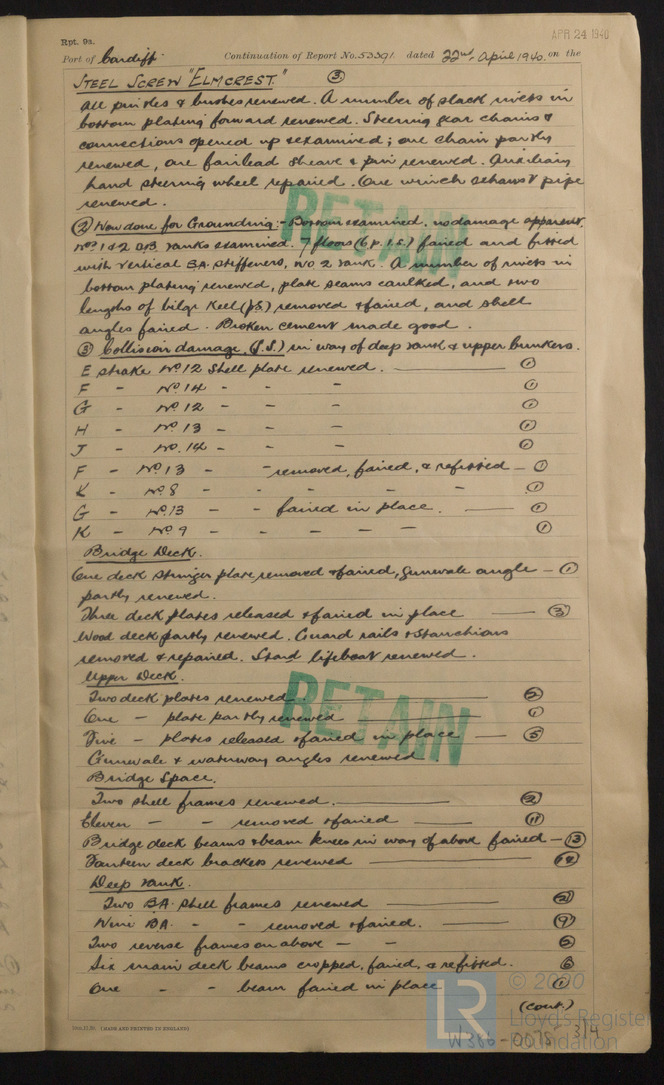 APR 24 1940
Rpt. 9a.
Port of Cardiff Continuation of Report No. 53391 dated 22nd April 1940. on the
STEEL SCREW "ELMCREST." ③
All pintles & bushes renewed. A number of slack rivets in
bottom plating forward renewed. Steering gear chains &
connections opened up & examined; one chain partly
renewed, one fairlead sheave & pin renewed. Auxiliary
hand steering wheel repaired. One winch exhaust pipe
renewed.
② Now done for Grounding:- Bottom examined, no damage apparent.
Nos 1 & 2 D.B. Tanks examined. 7 floors (6 p. 1 s.) faired and fitted
with vertical B.A. stiffeners, No 2 Tank. A number of rivets in
bottom plating renewed, plate seams caulked, and two
lengths of bilge keel (p.s.) removed & faired, and shell
angles faired. Broken cement made good.
③ Collision damage, (S.S.) in way of deep tank & upper bunkers.
E strake No 12 Shell plate renewed. ①
F - No 14 - - - ①
G - No 12 - - - ①
H - No 13 - - - ①
J - No. 14 - - - ①
F - No 13 - - removed, faired, & refitted - ①
K - No 8 - - - - - ①
G - No 13 - - faired in place. ①
K - No 9 - - - - - ①
Bridge Deck.
One deck stringer plate removed & faired, gunwale angle - ①
partly renewed.
Three deck plates released & faired in place ③
Wood deck partly renewed. Guard rails & stanchions
removed & repaired. Starbd lifeboat renewed.
Upper Deck.
Two deck plates renewed. ②
One - plate partly renewed ①
Five - plates released & faired in place ⑤
Gunwale & waterway angles renewed
Bridge Space.
Two shell frames renewed. ②
Eleven - - removed & faired ⑪
Bridge deck beams & beam knees in way of above faired - ⑬
Fourteen deck brackets renewed ⑭
Deep Tank.
Two B.A. shell frames renewed ②
Nine B.A. - - removed & faired. ⑨
Two reverse frames on above - - ②
Six main deck beams cropped, faired, & refitted. ⑥
One - - beam faired in place ①
(cont.)
RETAIN
RETAIN
(MADE AND PRINTED IN ENGLAND)
W386-0078 3/4
LR
© 2020
Lloyd's Register
Foundation